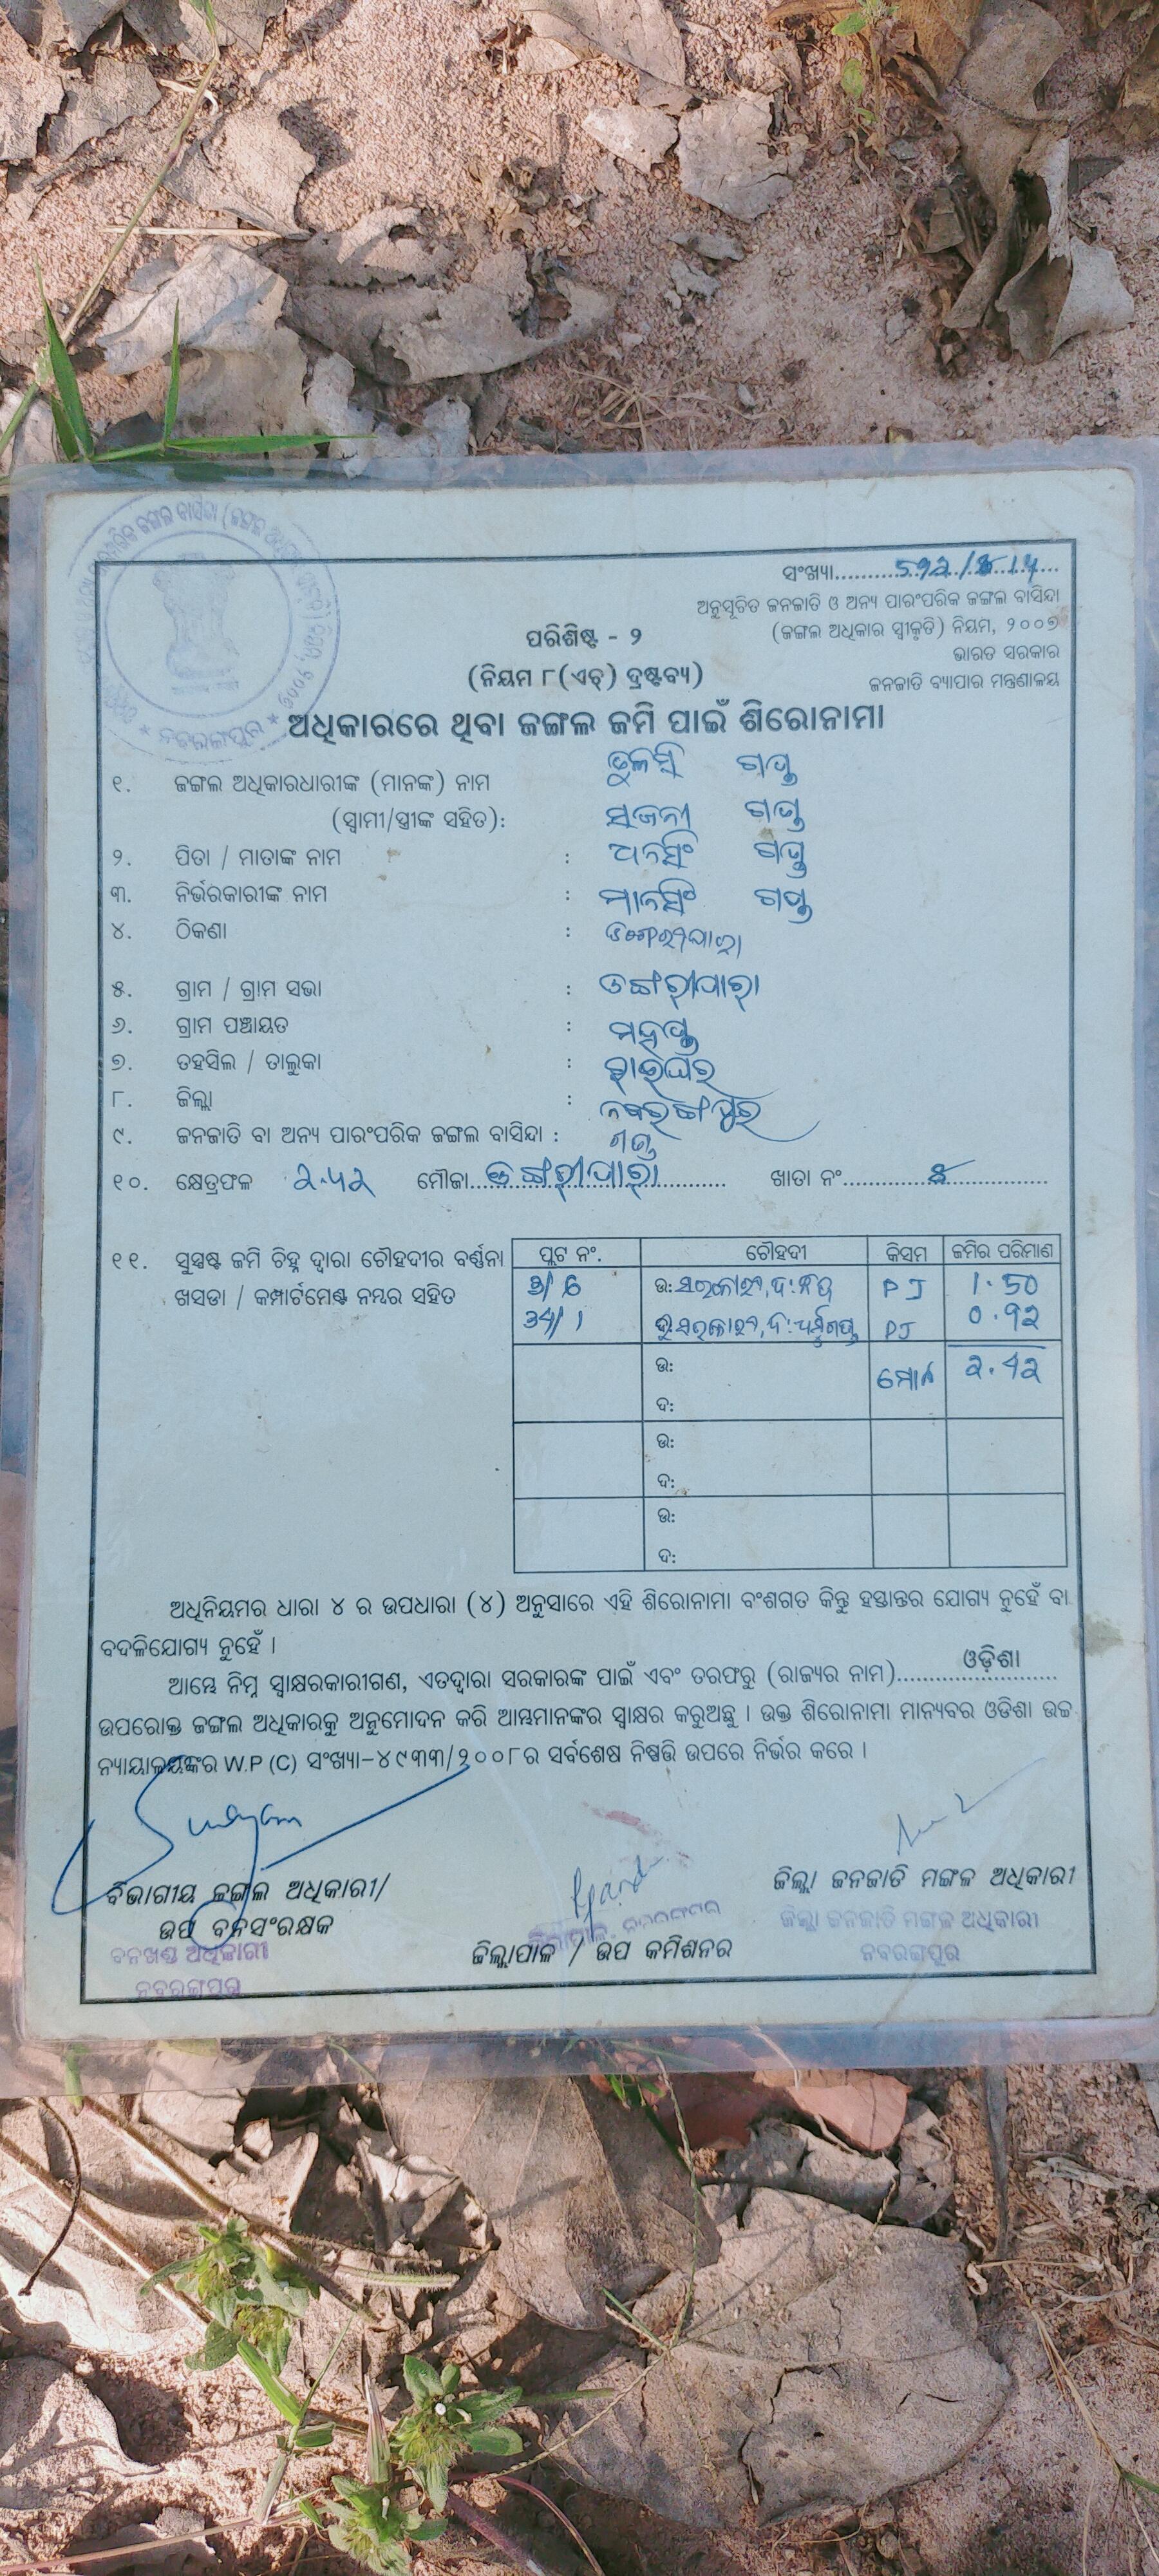 ସଂଖ୍ୟା....................
ଅନୁସୂଚିତ ଜନଜାତି ଓ ଅନ୍ୟ ପାରଂପରିକ ଜଙ୍ଗଲ ବାସିନ୍ଦା
(ଜଙ୍ଗଲ ଅଧିକାର ସ୍ୱୀକୃତି) ନିୟମ, ୨୦୦୭
ଭାରତ ସରକାର
ଜନଜାତି ବ୍ୟାପାର ମନ୍ତ୍ରଣାଳୟ
ପରିଶିଷ୍ଟ - ୨
(ନିୟମ ୮(ଏଚ୍) ଦ୍ରଷ୍ଟବ୍ୟ)
ଅଧିକାରରେ ଥିବା ଜଙ୍ଗଲ ଜମି ପାଇଁ ଶିରୋନାମା
୧. ଜଙ୍ଗଲ ଅଧିକାରଧାରୀଙ୍କ (ମାନଙ୍କ) ନାମ ଗଣ୍ଡ
(ସ୍ୱାମୀ/ସ୍ତ୍ରୀଙ୍କ ସହିତ): ସଜନୀ ଗଣ୍ଡ
୨. ପିତା / ମାତାଙ୍କ ନାମ : ଧନସିଂ ଗଣ୍ଡ
୩. ନିର୍ଭରକାରୀଙ୍କ ନାମ : ମାନସିଂ ଗଣ୍ଡ
୪. ଠିକଣା :
୫. ଗ୍ରାମ / ଗ୍ରାମ ସଭା : ଡଙ୍ଗରୀପାରା
୬. ଗ୍ରାମ ପଞ୍ଚାୟତ :
୭. ତହସିଲ / ତାଲୁକା : ରାଇଘର
୮. ଜିଲ୍ଲା : ନବରଙ୍ଗପୁର
୯. ଜନଜାତି ବା ଅନ୍ୟ ପାରଂପରିକ ଜଙ୍ଗଲ ବାସିନ୍ଦା : ଗଣ୍ଡ
୧୦. କ୍ଷେତ୍ରଫଳ ୨.୪୨ ମୌଜା ଡଙ୍ଗରୀପାରା ଖାତା ନଂ....................
୧୧. ସୁସ୍ପଷ୍ଟ ଜମି ଚିହ୍ନ ଦ୍ୱାରା ଚୌହଦୀର ବର୍ଣ୍ଣନା
ଖସଡା / କମ୍ପାର୍ଟମେଣ୍ଟ ନମ୍ବର ସହିତ
ପ୍ଲଟ ନଂ. ଚୌହଦୀ କିସମ ଜମିର ପରିମାଣ
3/6 ଉ: ସରକାରୀ, ଦ: PJ 1.50
34/1 ସରକାରୀ, ଦ: PJ 0.92
ଉ: ମୋଟ ୨.୪୨
ଦ:
ଉ:
ଦ:
ଉ:
ଦ:
ଅଧିନିୟମର ଧାରା ୪ ର ଉପଧାରା (୪) ଅନୁସାରେ ଏହି ଶିରୋନାମା ବଂଶଗତ କିନ୍ତୁ ହସ୍ତାନ୍ତର ଯୋଗ୍ୟ ନୁହେଁ ବା
ବଦଳିଯୋଗ୍ୟ ନୁହେଁ ।
ଆମ୍ଭେ ନିମ୍ନ ସ୍ୱାକ୍ଷରକାରୀଗଣ, ଏତଦ୍ଦ୍ୱାରା ସରକାରଙ୍କ ପାଇଁ ଏବଂ ତରଫରୁ (ରାଜ୍ୟର ନାମ)....ଓଡ଼ିଶା....
ଉପରୋକ୍ତ ଜଙ୍ଗଲ ଅଧିକାରକୁ ଅନୁମୋଦନ କରି ଆମ୍ଭମାନଙ୍କର ସ୍ୱାକ୍ଷର କରୁଅଛୁ । ଉକ୍ତ ଶିରୋନାମା ମାନ୍ୟବର ଓଡିଶା ଉଚ୍ଚ
ନ୍ୟାୟାଳୟଙ୍କର W.P (C) ସଂଖ୍ୟା-୪୯୩୩/୨୦୦୮ର ସର୍ବଶେଷ ନିଷ୍ପତ୍ତି ଉପରେ ନିର୍ଭର କରେ ।
ବିଭାଗୀୟ ଜଙ୍ଗଲ ଅଧିକାରୀ/
ଉପ ବନସଂରକ୍ଷକ
ବନଖଣ୍ଡ ଅଧିକାରୀ
ନବରଙ୍ଗପୁର
ଜିଲ୍ଲାପାଳ / ଉପ କମିଶନର
ଜିଲ୍ଲା ଜନଜାତି ମଙ୍ଗଳ ଅଧିକାରୀ
ଜିଲ୍ଲା ଜନଜାତି ମଙ୍ଗଳ ଅଧିକାରୀ
ନବରଙ୍ଗପୁର